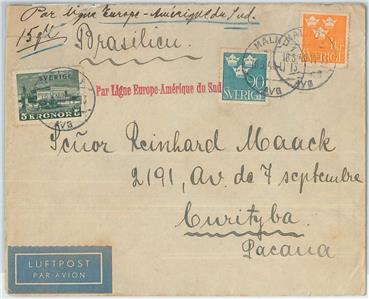 Par ligne Europe-Amérique du Sud.
15 gr
Brasilien.
SVERIGE
5 KRONOR
AVG
Par Ligne Europe-Amérique du Sud
90
SVERIGE
MALMÖ
AVG
SVERIGE
Señor Reinhard Maack
2191, Av. de 7 septembre
Curityba
Pacana
LUFTPOST
PAR AVION